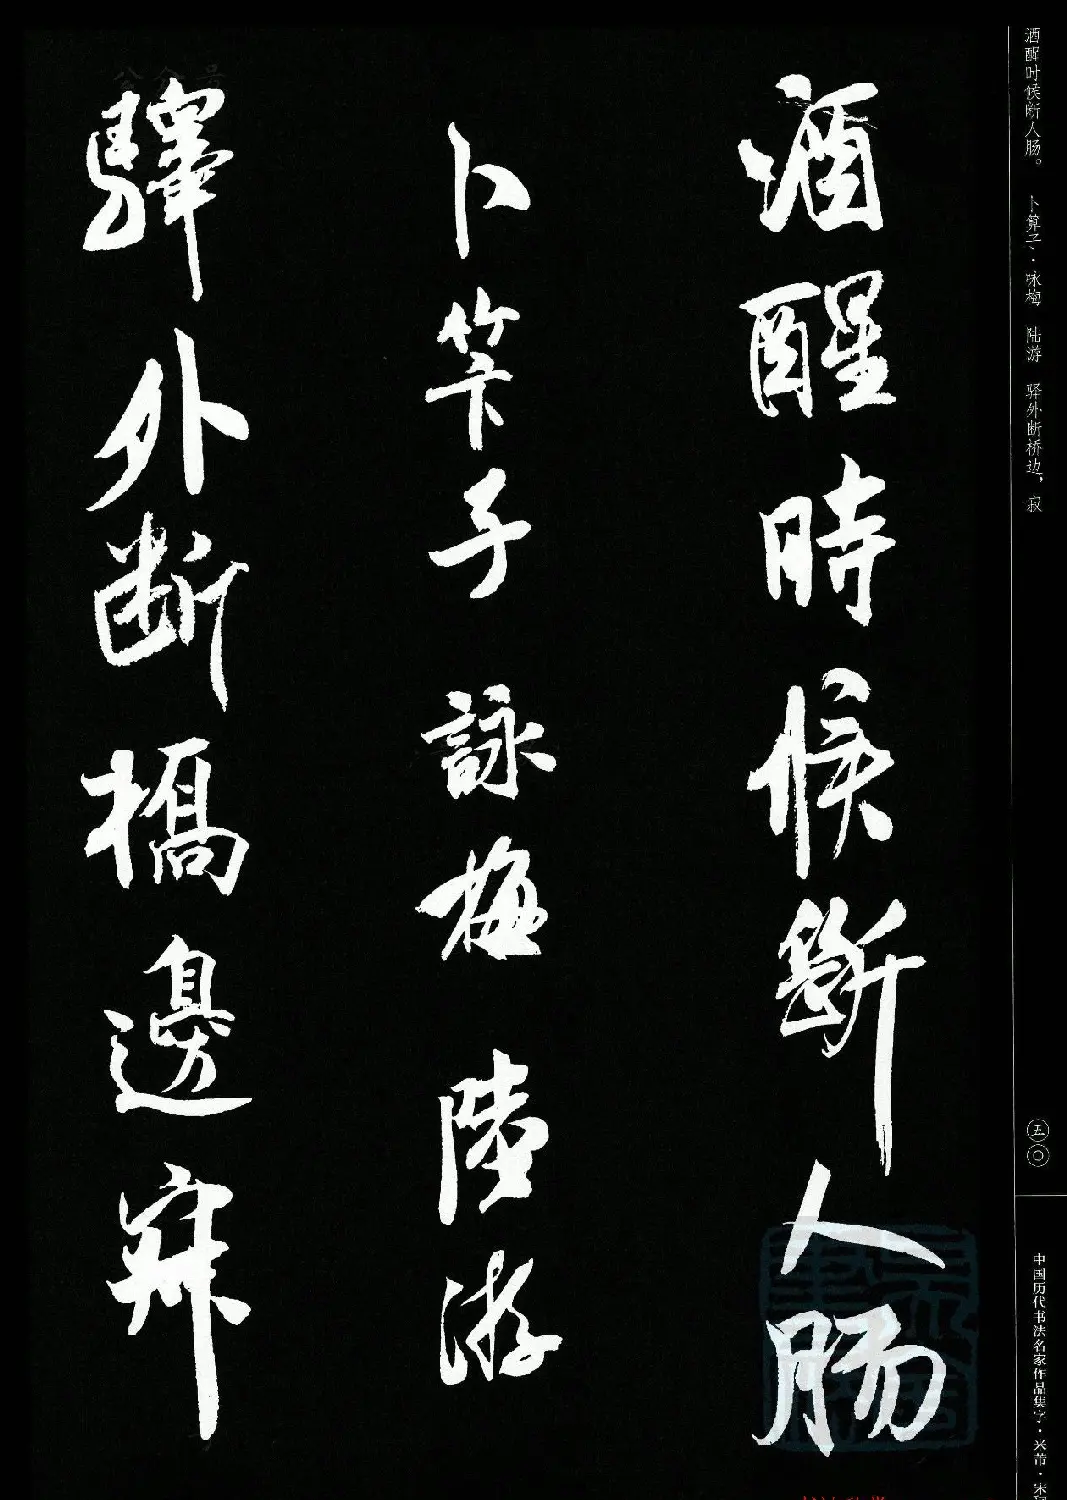 酒醒時候斷人腸
卜筭子 詠梅 陸游
驛外断橋邊寂
酒醒时候断人肠。 卜算子·咏梅 陆游 驿外断桥边，寂
五〇
中国历代书法名家作品集字·米芾·宋
公众号